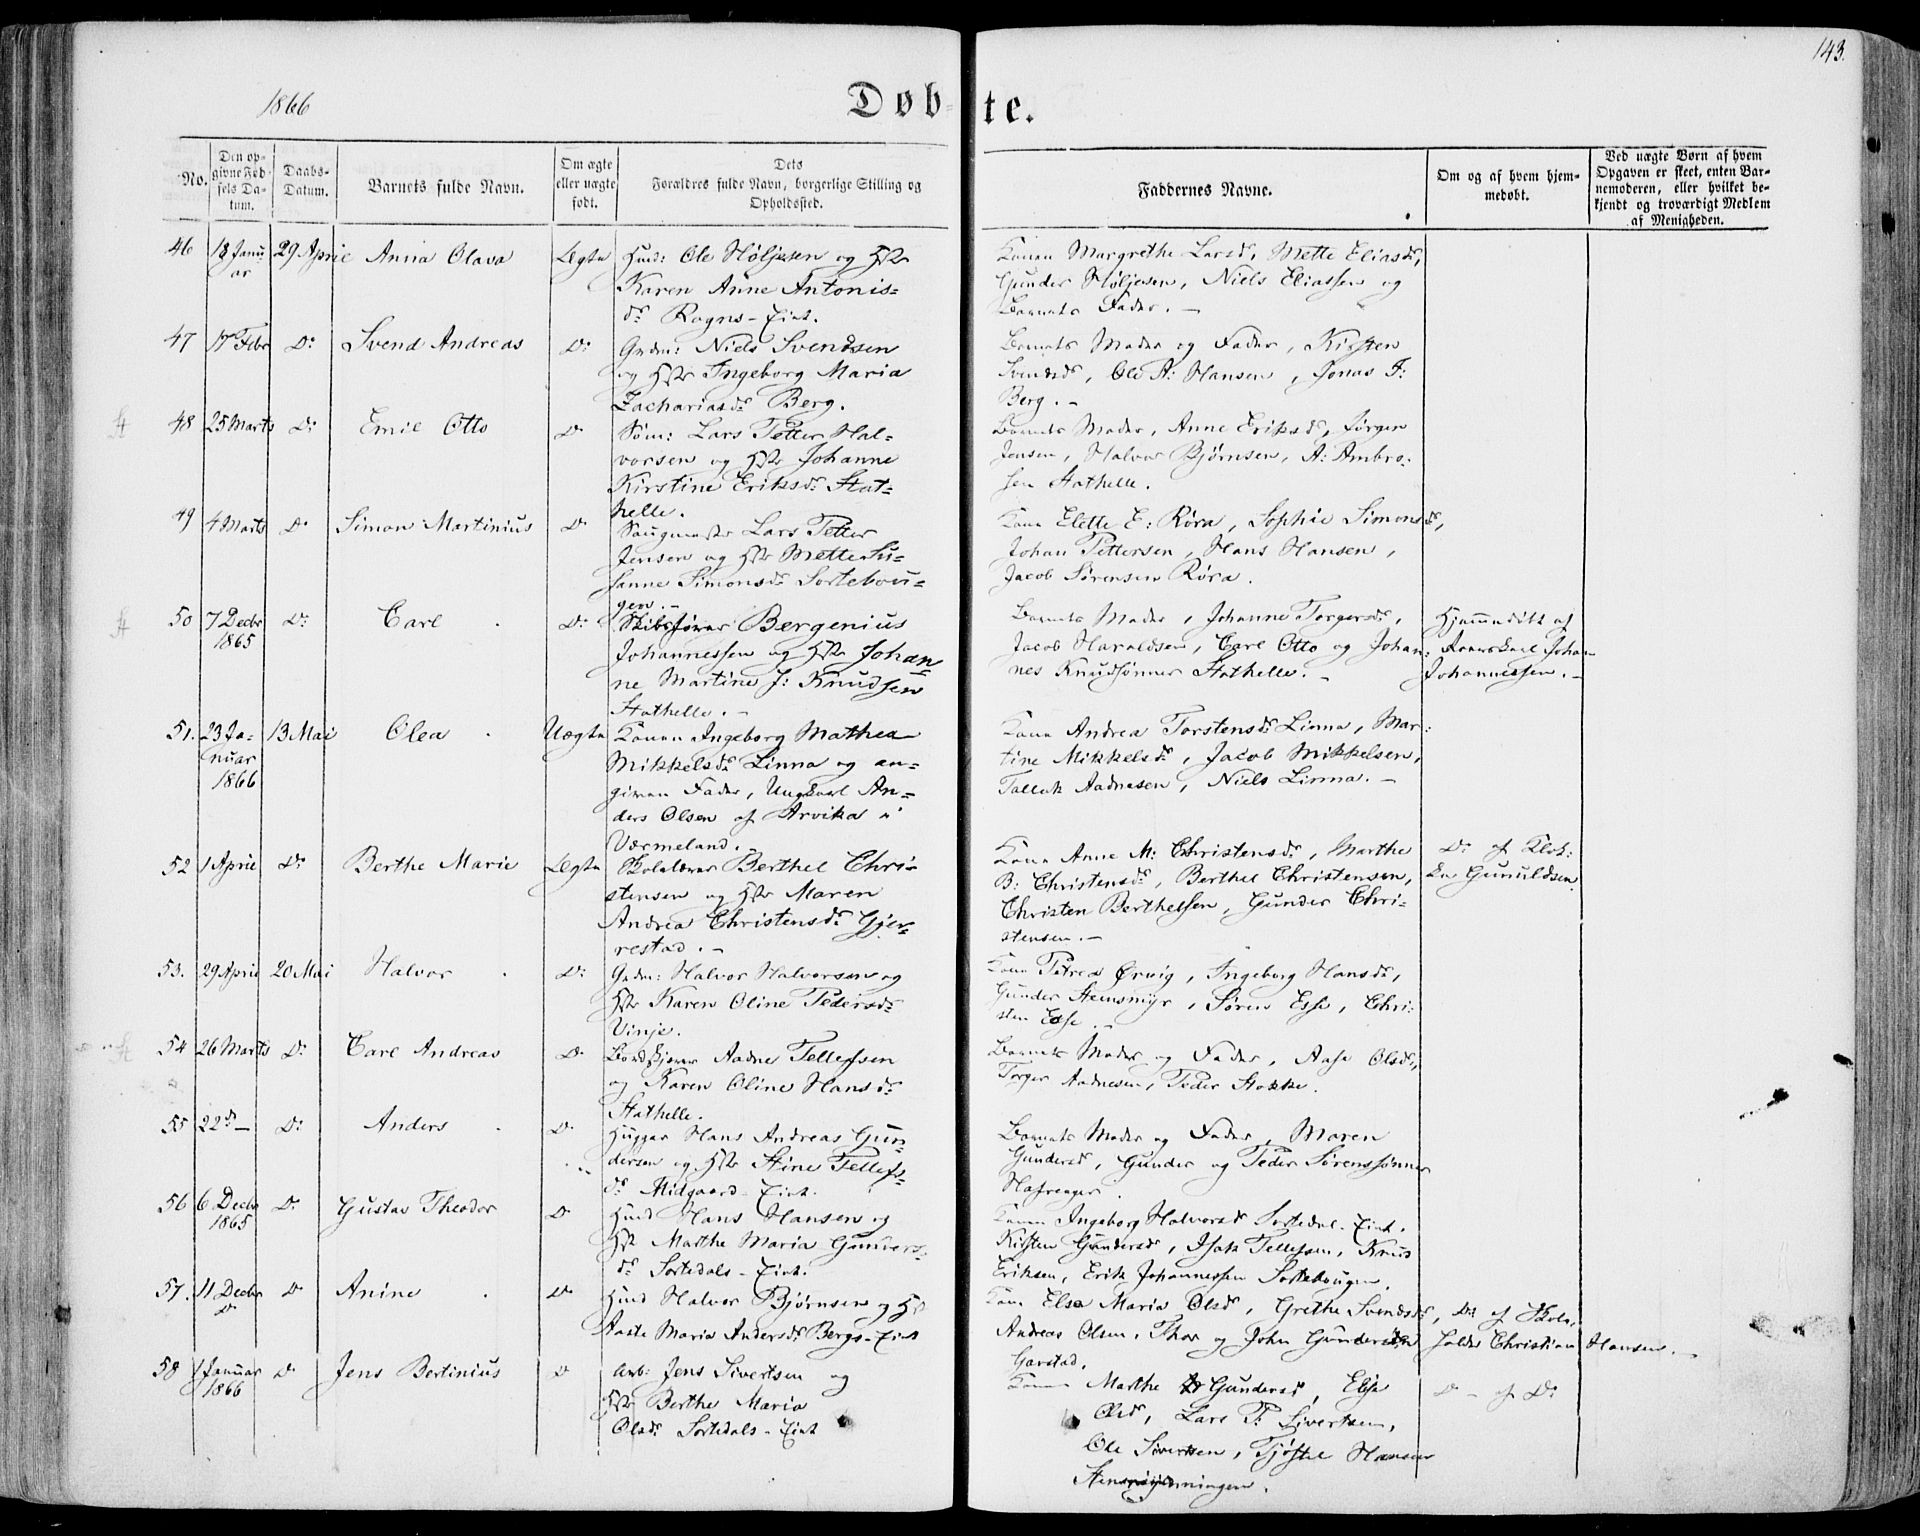 143.
1866
Døb-te.
No.
Den op-
givne Fød-
sels Da-
tum.
Daabs-
Datum.
Barnets fulde Navn.
Om ægte
eller uægte
født.
Dets
Forældres fulde Navn, borgerlige Stilling og
Opholdssted.
Faddernes Navne.
Om og af hvem hjem-
medøbt.
Ved uægte Børn af hvem
Opgaven er skeet, enten Bar-
nemoderen, eller hvilket be-
kjendt og troværdigt Medlem
af Menigheden.
46 18 Janu- 29 April Anna Olava Ægte Huusm: Ole Høljesen og Hstr
ar Karen Anne Antonis-
dr Rogns-Eiet.
Konen Margrethe Larsdr, Mette Eliasdr,
Gunder Høljesen, Niels Eliassen og
Barnets Fader. -
47 17 Febr Do: Svend Andreas Do: Grdm: Niels Svendsen
og Hstr Ingeborg Maria
Zachariasdr Berg.
Barnets Moder og Fader, Kirsten
Svendsdr, Ole A: Hansen, Jonas F:
Berg. -
48 25 Marts Do: Emil Otto Do Søm: Lars Petter Hal-
vorsen og Hstr Johanne
Kirstine Eriksdr Stat-
helle.
Barnets Moder, Anne Eriksdr, Jørgen
Jensen, Halvor Bjørnsen, A: Ambro-
sen Stathelle.
49 4 Marts Do Simon Martinius Do Saugmester Lars Petter
Jensen og Hstr Mette Su-
sanne Simonsdr Sortebou-
gen. -
Kone Elette E: Røra, Sophie Simonsdr,
Johan Pettersen, Hans Hansen,
Jacob Sørensen Røra.
50 7 Decbr Do: Carl Do: Skibsfører Bergenius
1865 Johannessen og Hstr Johan-
ne Martine J: Knudsen
Stathelle. -
Barnets Moder, Johanne Torgersdr,
Jacob Haraldsen, Carl Otto og Johan-
nes Knudsønner Stathelle. -
Hjemmedøbt af
Johan
Johannessen. -
51. 23 Ja- 13 Mai Olea Uægte Konen Ingeborg Mathea
nuar Mikkelsdr Linna og an-
1866 given Fader, Ungkarl An-
ders Olsen af Arvika i
Værmeland. -
Kone Andrea Torstensdr Linna, Mar-
tine Mikkelsdr, Jacob Mikkelsen,
Tallak Aadnesen, Niels Linna. -
52 1 April Do Berthe Marie Ægte Berthel Chri-
stensen og Hstr Maren
Andrea Christensdr Gjer-
restad. -
Kone Anne M: Christensdr, Marthe
B: Christensdr, Berthel Christensen,
Christen Berthelsen, Gunder Chri-
stensen. -
Do: af Klok-
ker Gunuldsen.
53. 29 April 20 Mai Halvor Do: Grdm: Halvor Halvorsen og
Hstr Karen Oline Pedersdr
Vinje.
Kone Petrea Ørvig, Ingeborg Hansdr,
Gunder Stensmyr, Søren Esse, Chri-
sten Esse. -
54 26 Marts Do: Carl Andreas Do Aadne Tellefsen
og Karen Oline Hansdr
Stathelle.
Barnets Moder og Fader, Aase Olsdr,
Torger Aadnesen, Peder Stokke.
55 22d - Do: Anders Do Hugger Hans Andreas Gun-
dersen og Hstr Stine Tellefs-
dr Midgaard-Eiet.
Barnets Moder og Fader, Maren
Gundersdr, Gunder og Peder Sørenssønner
Hafsager.
56 6 Decbr Do Gustav Theodor Do Huusm Hans Hansen og
1865 Hstr Marthe Maria Gunders-
dr Sortedals-Eiet.
Konen Ingeborg Halvorsdr Sortedal-Eiet.
Kirsten Gundersdr, Isak Tellefsen, Knud
Eriksen, Erik Johannessen Sortebougen.
57. 11 Decbr Do Anine Do Huusm Halvor Bjørnsen og Hstr
Do Aaste Maria Andersdr Bergs-Eiet
Kone Else Maria Olsdr, Grethe Svendsdr,
Andreas Olsen, Thor og John Gundersen
Garstad.
Do: af Skole-
holder Christian Hansen. -
58 1 Januar Do Jens Bertinius Do Arb: Jens Sivertsen og
1866 Hstr Berthe Maria
Olsdr Sortedals-Eiet
Konen Marthe Gundersdr, Else
Olsdr, Lars P: Sivertsen,
Ole Sivertsen, Tjøstel Hansen
Do - af Do